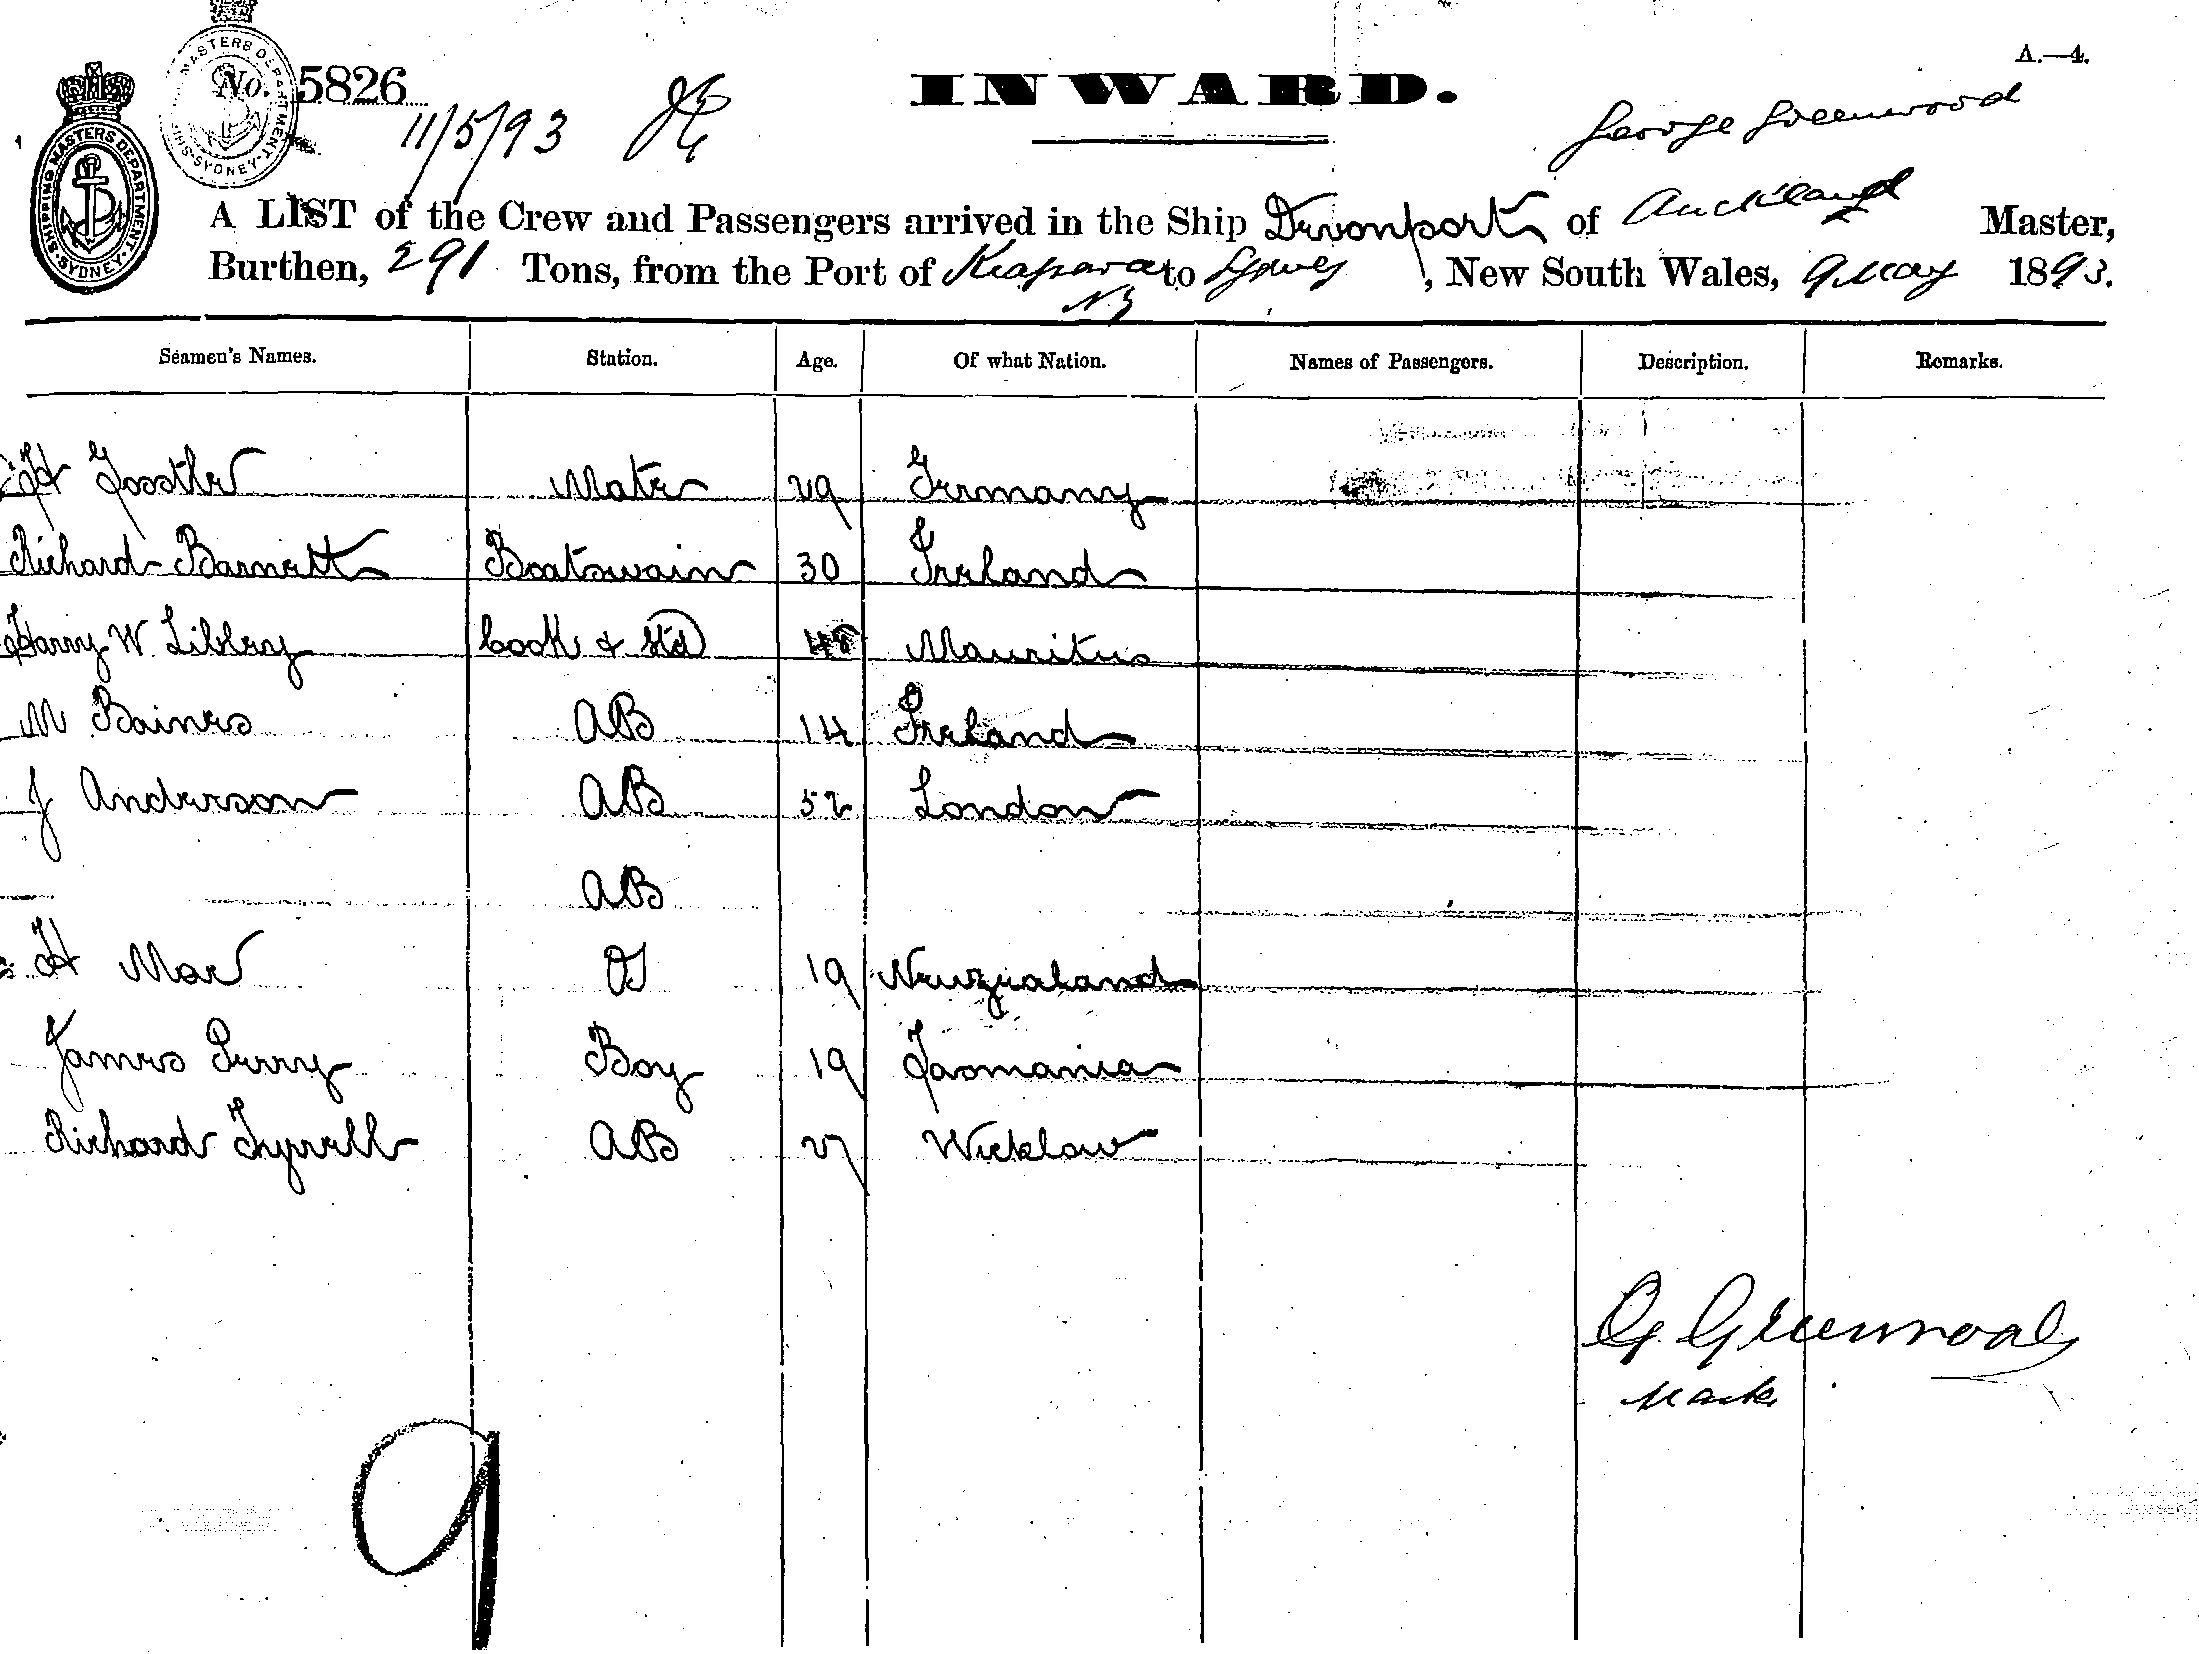 A.—4.
No. 5826
INWARD.
11/5/93
George Greenwood
SHIPPING MASTERS DEPARTMENT. SYDNEY.
A LIST of the Crew and Passengers arrived in the Ship Devonport of Auckland Master,
Burthen, 291 Tons, from the Port of Kiapara to Sydney, New South Wales, 9 May 1893.
NZ
Seamen's Names. Station. Age. Of what Nation. Names of Passengers. Description. Remarks.
H Mate 29 Germany
Richard Barnett Boatswain 30 Ireland
Harry W. Libbey Cook & Std Mauritus
M Baines AB 14 Ireland
J Anderson AB 52 London
AB
H Mar OS 19 Newzealand
James Perry Boy 19 Tasmania
Richard Tyrrell AB 27 Wicklow
G Greenwood
Master
9